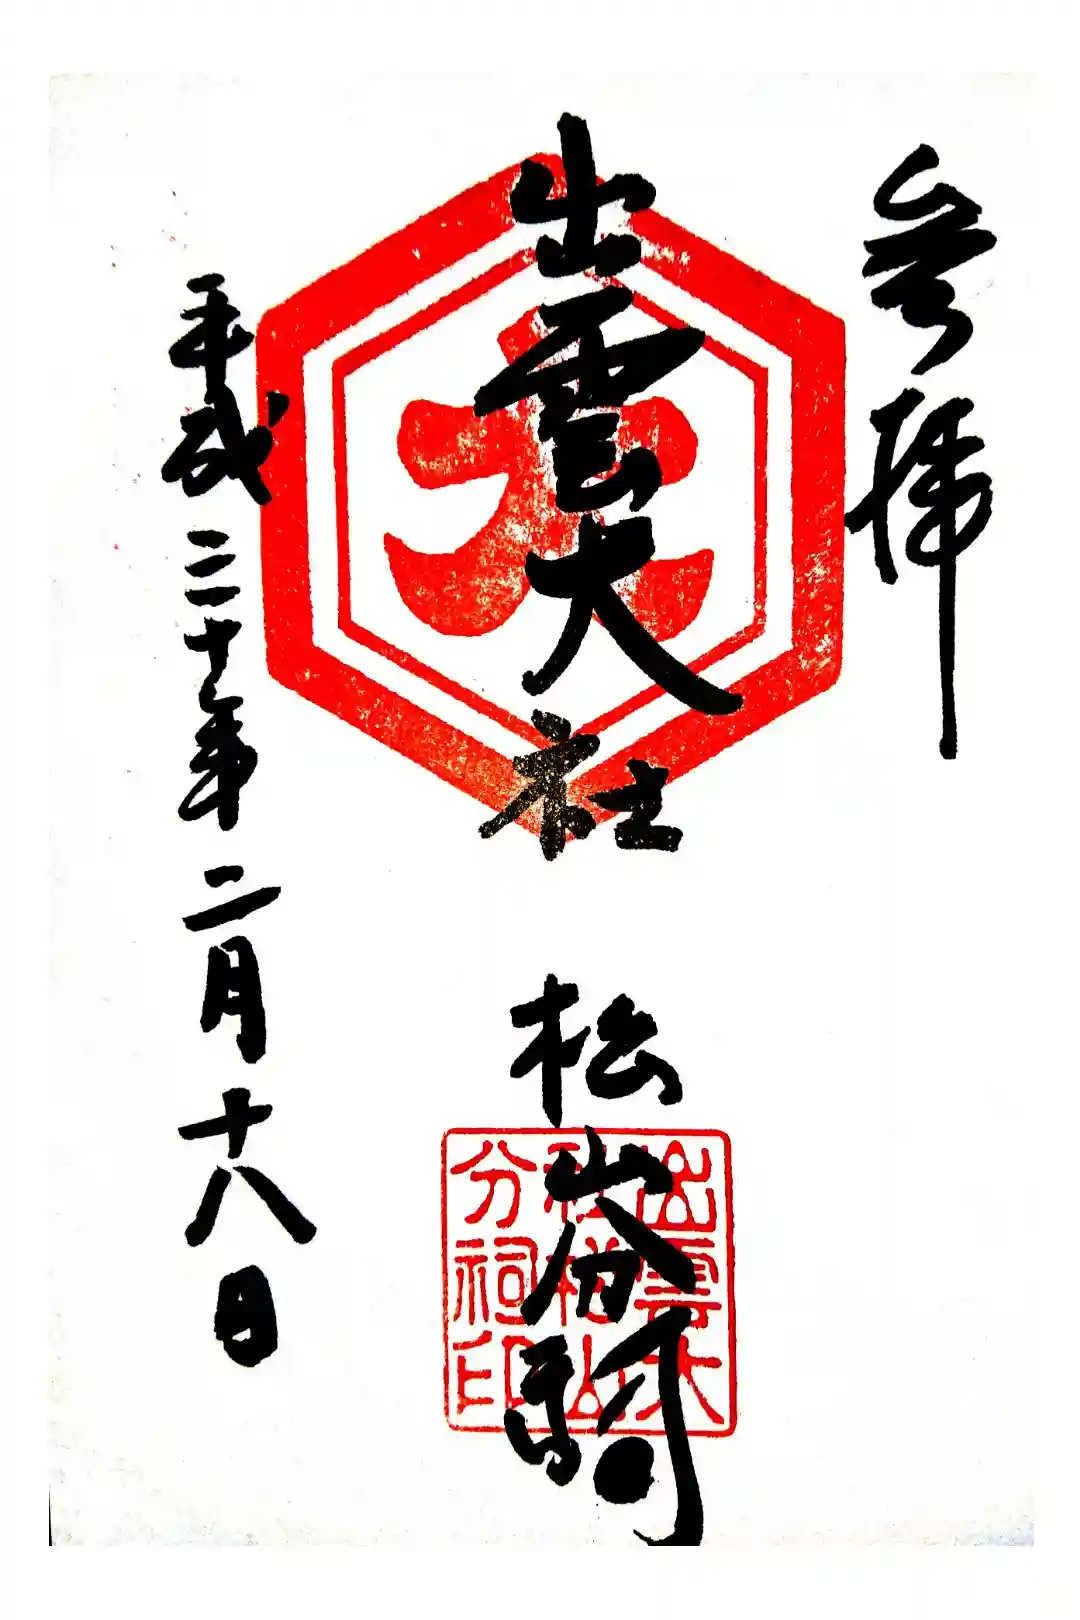 参拝
出雲大社 松山分祠
平成三十年二月十八日
大
出雲大
社松山
分祠印